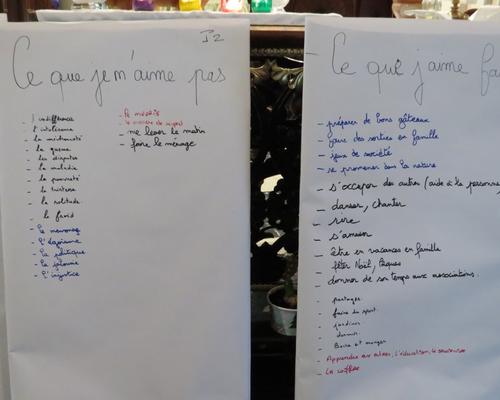 I2
Ce que je m'aime pas
- l'indifférence
- l'intolérance
- la médiocrité
- la guerre
- les disputes
- la maladie
- la pauvreté
- la tristesse
- la solitude
- le froid
- Le mensonge
- L'égoïsme
- La politique
- La jalousie
- L'injustice
- Le mépris
- Le manque de respect
- me lever le matin
- faire le ménage
Ce que j'aime fai
- préparer de bons gâteaux
- faire des sorties en famille
- jeux de société
- se promener dans la nature
- s'occuper des autres (aide à la personne
- danser, chanter
- rire
- s'amuser
- être en vacances en famille
- fêter Noël, Pâques
- donner de son temps aux associations.
- partager
- faire du sport
- jardiner
- dormir
- Boire et manger
- Apprendre aux autres, l'éducation, le
- La coiffure